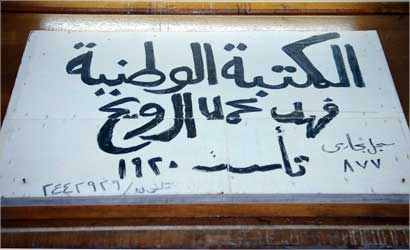 المكتبة الوطنية
فهد محمد الرويح
سجل تجاري
تأسست ١٩٢٠
٨٧٧
تلفون / ٢٤٤٢٩٢٩